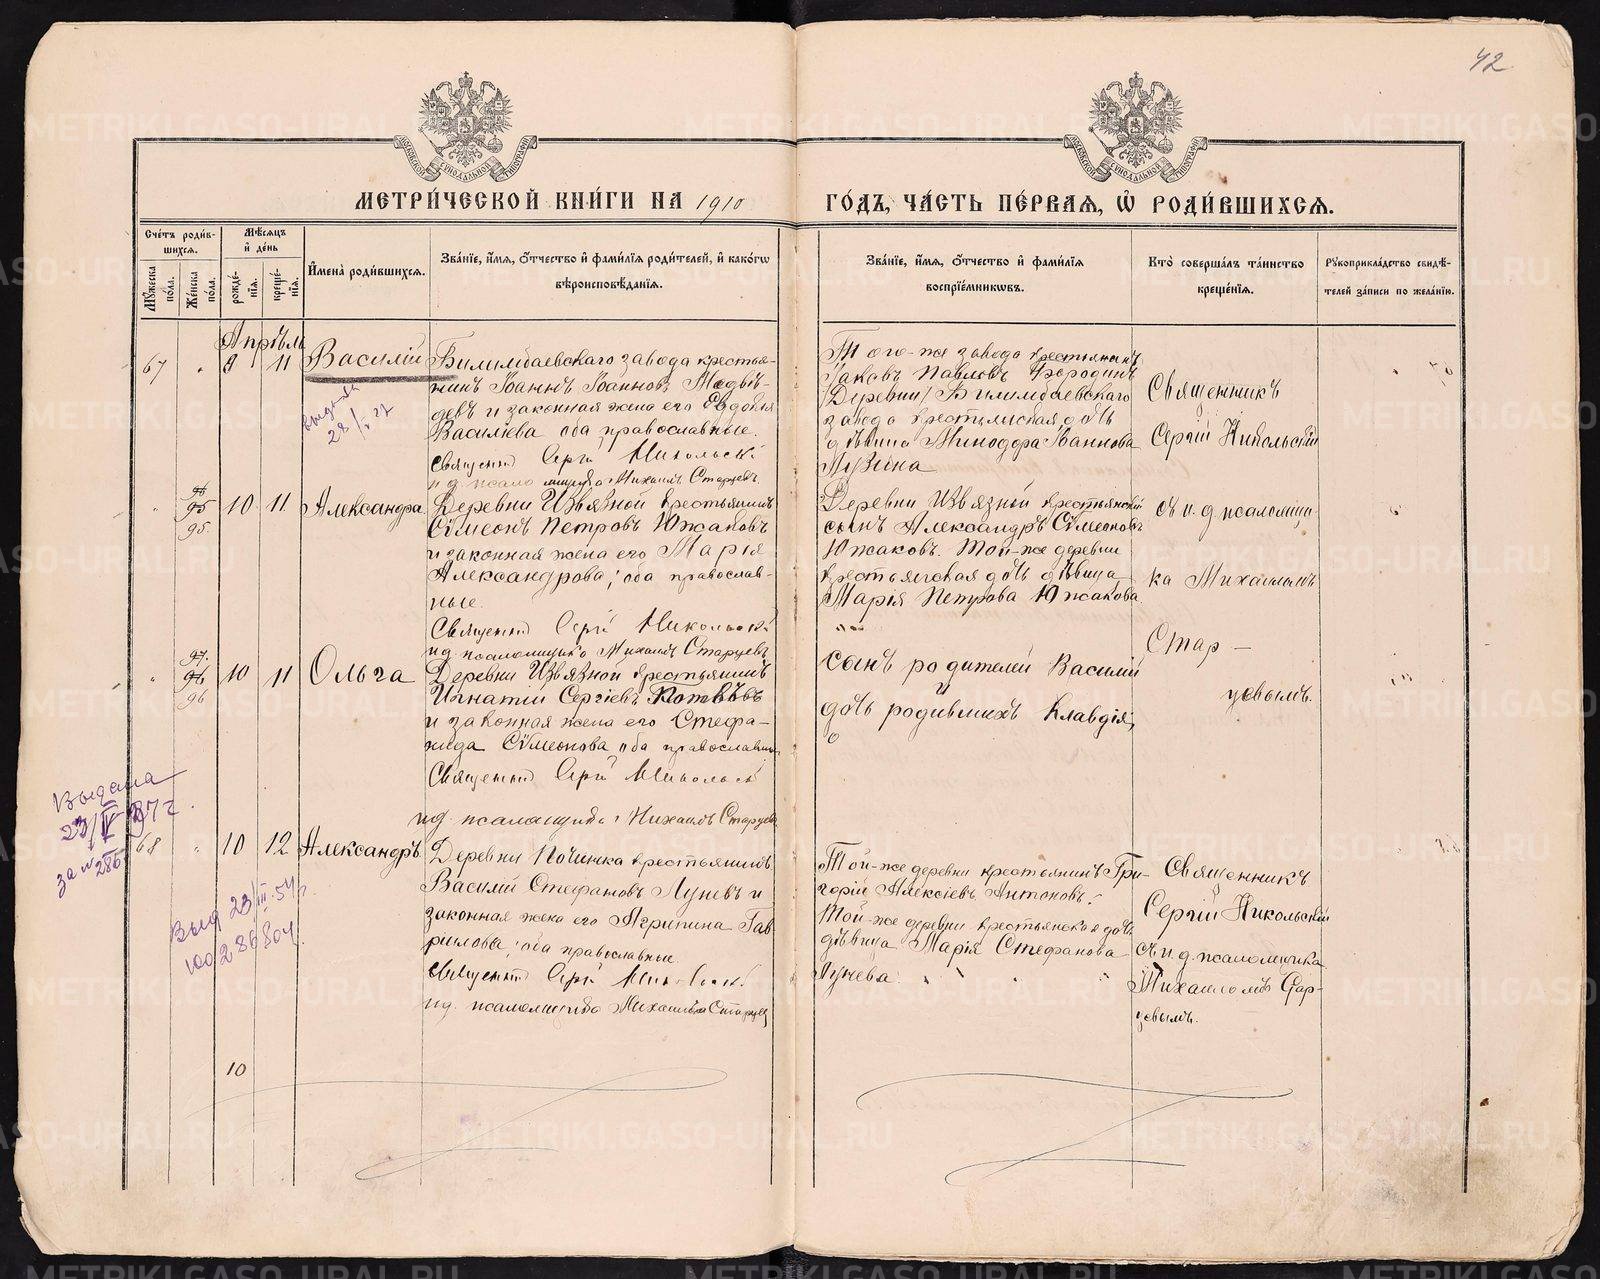 42
МЕТРИ́ЧЕСКОЙ КНИ́ГИ НА 1910
ГО́ДЪ, ЧА́СТЬ ПЕ́РВАЯ, Ѡ҆ РОДИ́ВШИХСЯ.
Сче́тъ роди́в-
шихся.
Мѣ́сяцъ
и҆ де́нь
Му́жеска
по́ла.
Же́нска
по́ла.
рожде́-
нїя.
креще́-
нїя.
И҆мена̀ роди́вшихся.
Зва́нїе, и҆́мя, ѻ҆́тчество и҆ фами́лїя роди́телей, и҆ како́гѡ
вѣроисповѣ́данїя.
Зва́нїе, и҆́мя, ѻ҆́тчество и҆ фами́лїя
воспрїе́мникѡвъ.
Кто̀ соверша́лъ та́инство
креще́нїя.
Рꙋкоприкла́дство свидѣ́-
телей за́писи по жела́нїю.
Апрѣль
67
9
11
Василій
Билимбаевскаго завода крестья-
нинъ Іоаннъ Іоанновъ Медвѣ-
девъ и законная жена его Евдокія
Василіева оба православные.
Священник Сергій Никольскій
и д. псаломщика Михаилъ Старцевъ
28/I 27
Того-же завода крестьянинъ
Іаковъ Павловъ Бородинъ
(Деревни) Билимбаевскаго
завода крестьянская дочь
дѣвица Минодора Іоаннова
Священникъ
Сергій Никольскій
96
95
95.
10
11
Александра
Деревни Извязной крестьянинъ
Сѵмеонъ Петровъ Южаковъ
и законная жена его Марія
Александрова; оба православ-
ные.
Священник Сергій Никольскій
и д. псаломщика Михаилъ Старцевъ
Деревни Извязной крестьянскій
сынъ Александръ Сѵмеоновъ
Южаковъ. Той-же деревни
крестьянская дочь дѣвица
Марія Петрова Южакова
съ и. д. псаломщи-
ка Михаиломъ
Стар-
цевымъ.
97.
96
96
10
11
Ольга
Деревни Извязной крестьянинъ
Игнатій Сергіевъ
и законная жена его Стефа-
нида Сѵмеонова оба православные
Священник Сергій Никольскій
и д. псаломщика Михаилъ Старцевъ
сынъ родителей Василій
и
дочь родившихъ Клавдія,
Выдана
23/IV 37 г.
за №
2865
68
10
12
Александръ
Деревни Починка крестьянинъ
Василій Стефановъ Луневъ и
законная жена его Агрипина Гав
рилова; оба православные.
Священник Сергій Никольскій
и д. псаломщика Михаилъ Старцевъ
Выд 23/III-54 г.
286804
Той-же деревни крестьянинъ Гри-
горій Алексіевъ Антоновъ.
Той-же деревни крестьянская дочь
дѣвица Марія Стефанова
Лунева.
Священникъ
Сергій Никольскій
съ и. д. псаломщика
Михаиломъ Стар-
цевымъ.
10